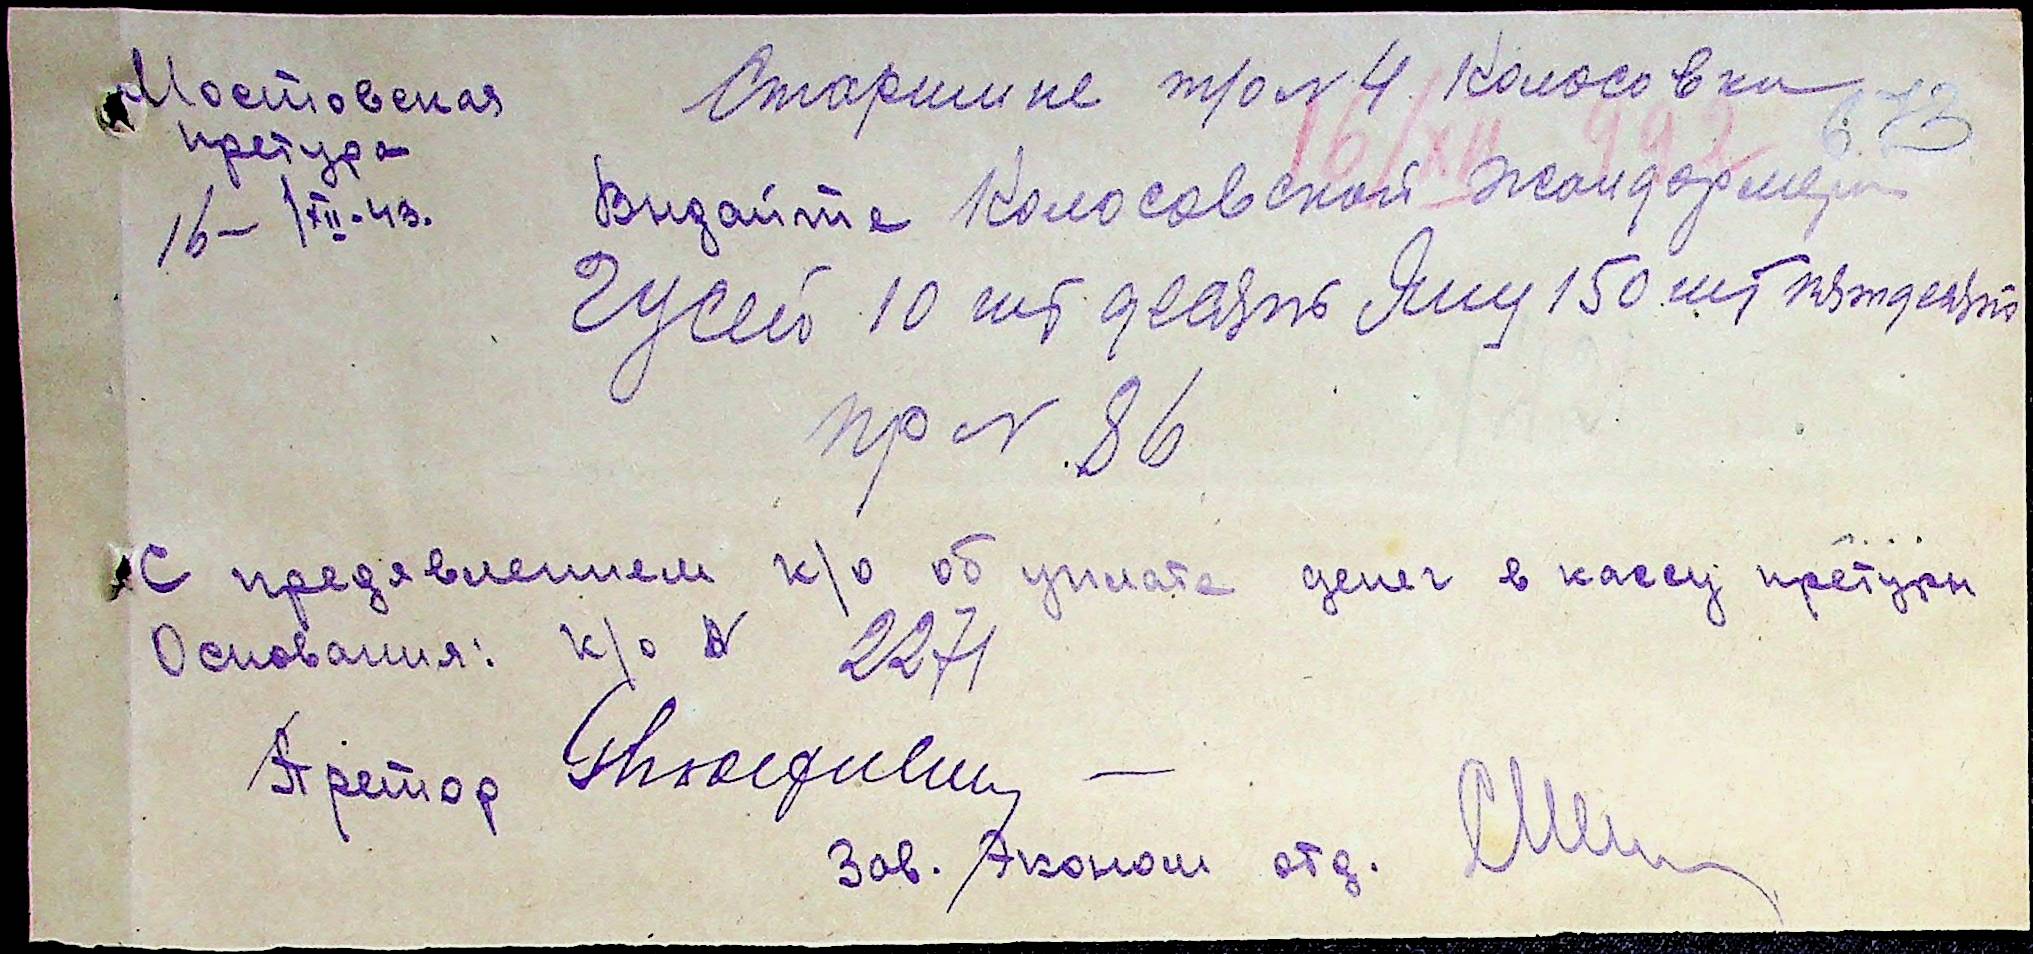 Мостовская
претура
16-/XII-43.
Старшине тр/о N 4 Колосовка
673
16/XII 992
Выдайте Колосовской жандармерии
Гусей 10 шт десять Яиц 150 шт пятдесять
пр N 86
С предявлением к/о об уплате денег в кассу претуры
Основания: к/о N 2271
Претор
Зав. Эконом отд.